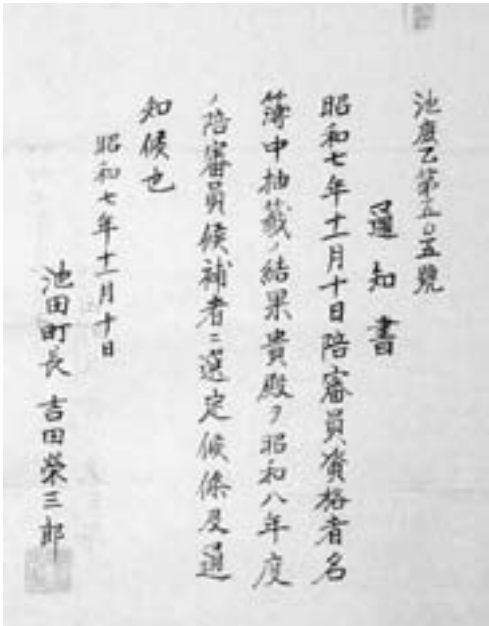 池庶乙第五〇五號
通知書
昭和七年十一月十日陪審員資格者名
簿中抽籤ノ結果貴殿ヲ昭和八年度
ノ陪審員候補者ニ選定候條及通
知候也
昭和七年十一月十日
池田町長 吉田榮三郎